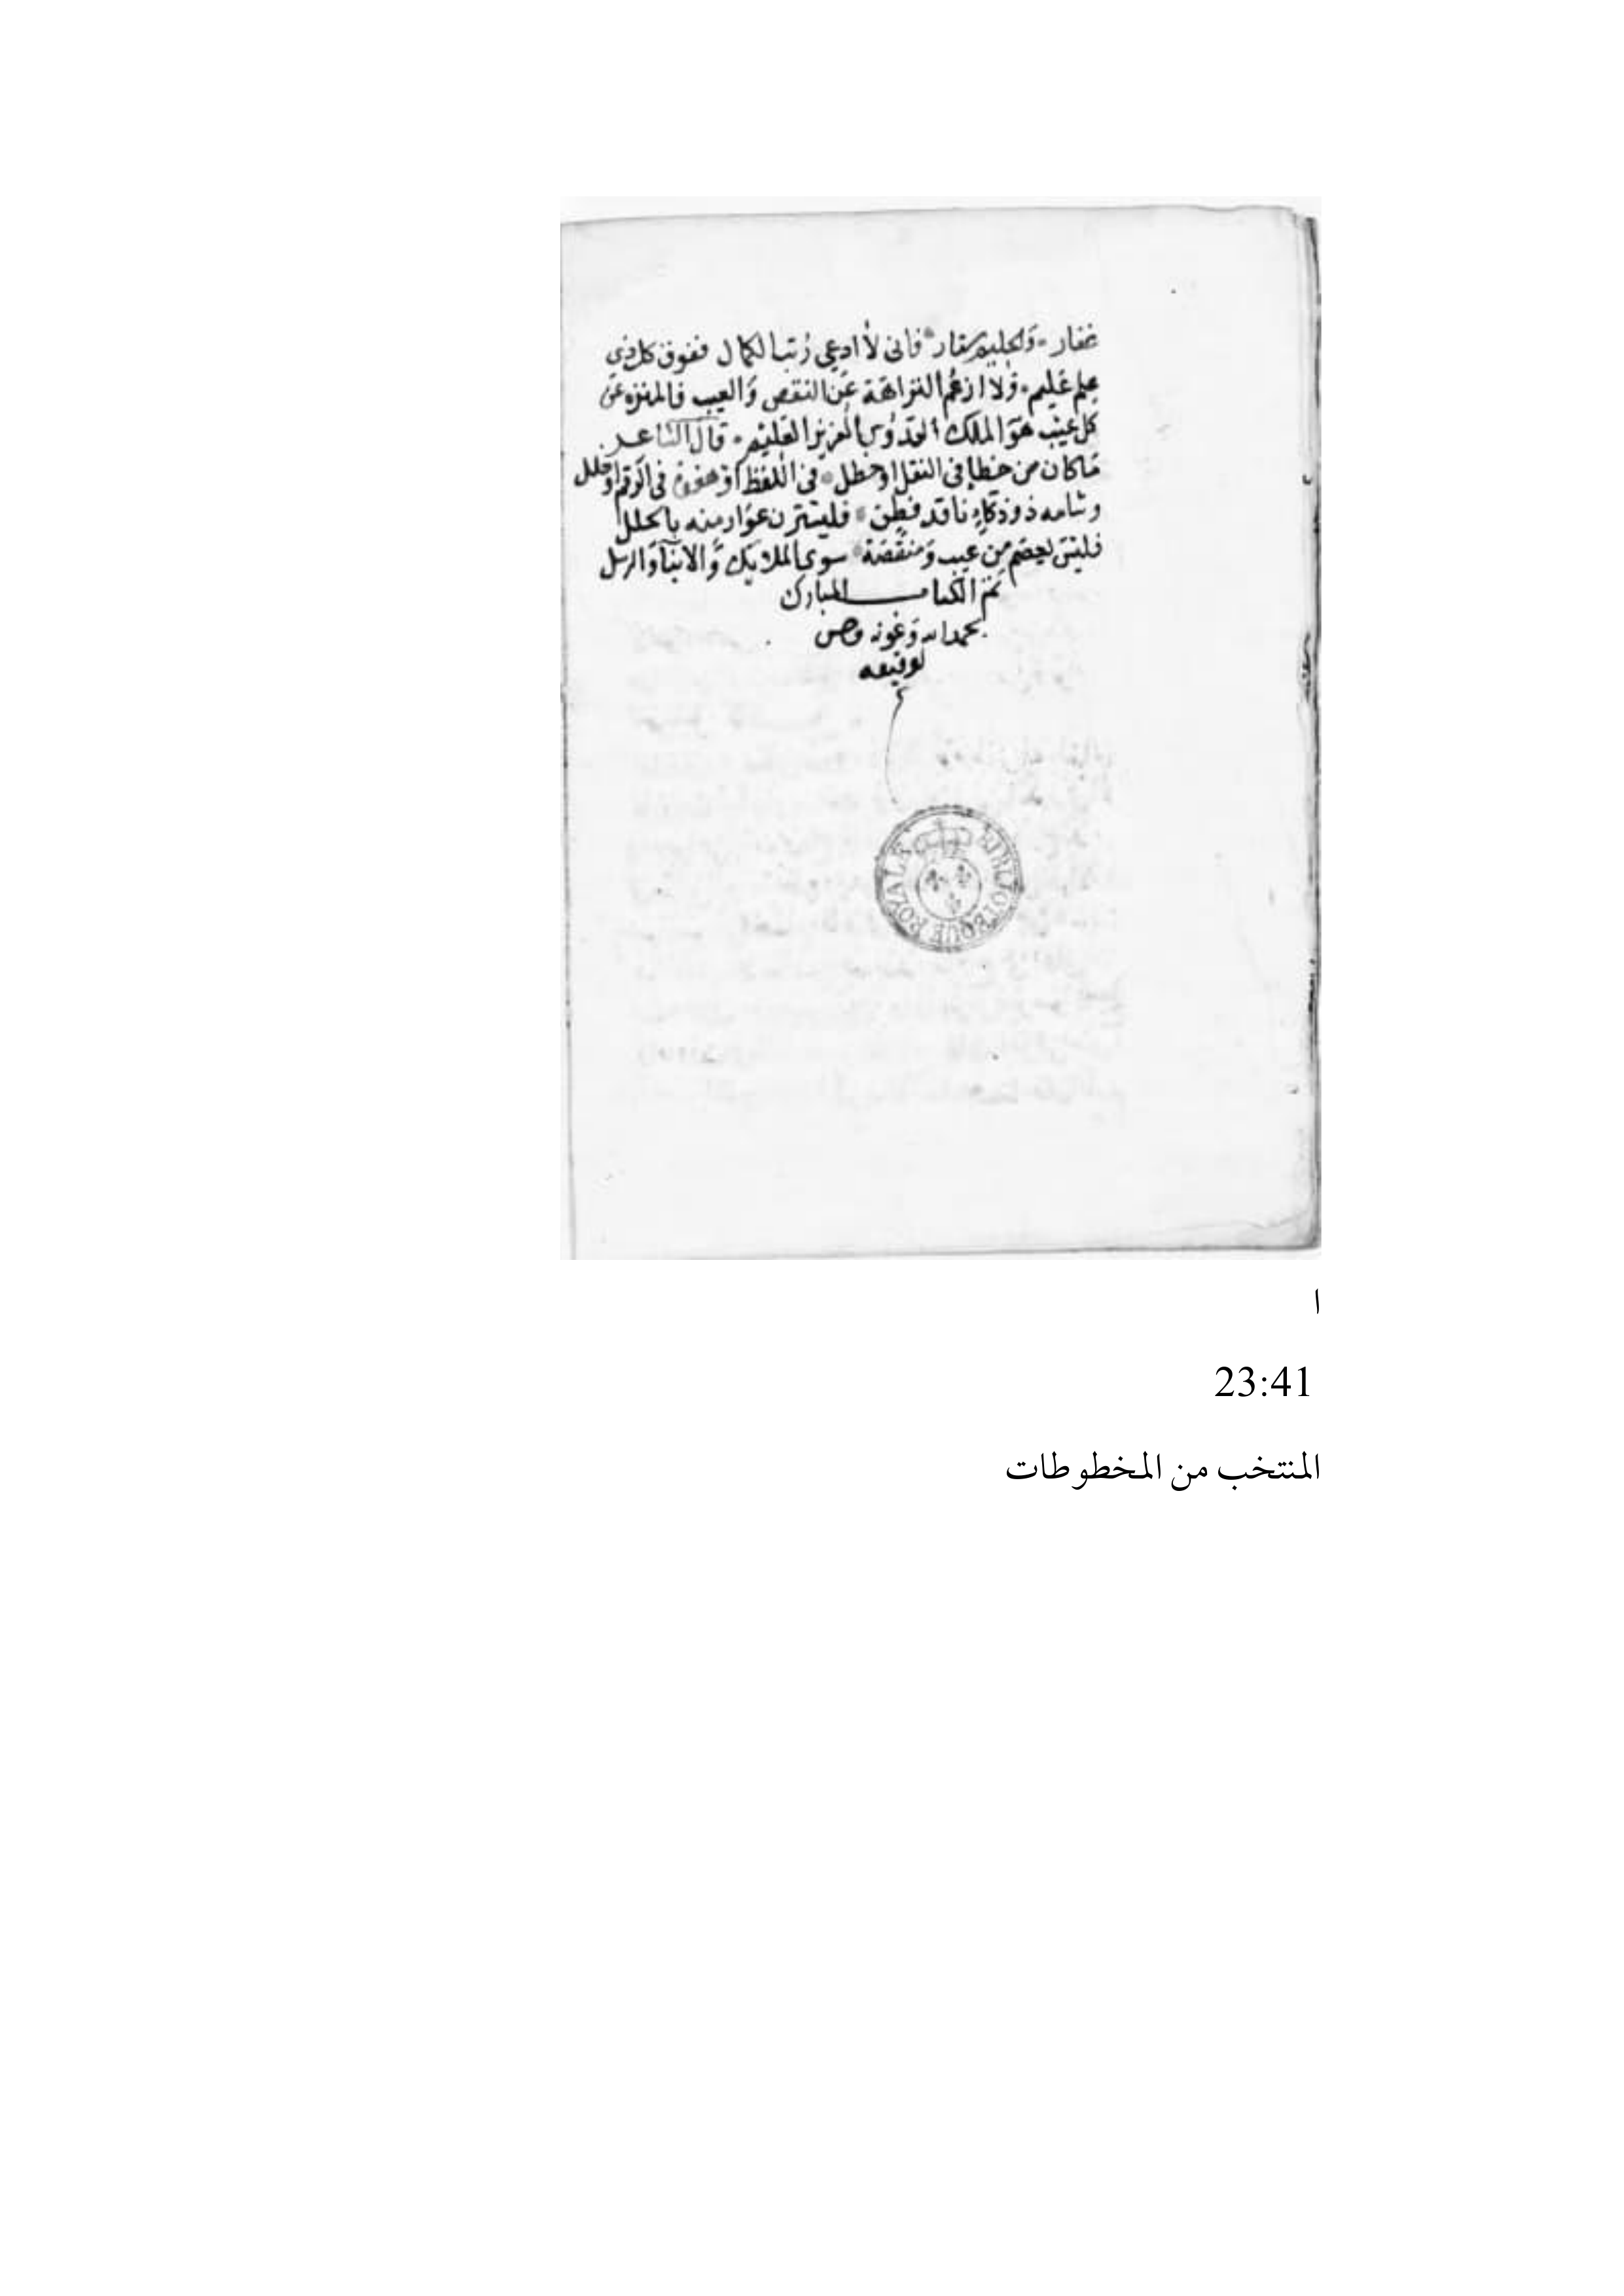 غفار * والحليم ستار * فاني لا ادعي رتب الكمال ففوق كل ذي
علم عليم * ولا ازعم النزاهة عن النقص والعيب فالمنزه عن
كل عيب هو الملك القدوس العزيز العليم * قال الشاعر
ما كان من خطإ في النقل او خطل * في اللفظ او هفوة في الرقم او خلل
وشامه ذو ذكاء ناقد فطن * فليسترن عوار منه بالحلل
فليس يعصم من عيب ومنقصة * سوى الملايك والانبيآ والرسل
تم الكتاب المبارك
بحمد الله وعونه وحسن
توفيقه
BIBLIOTEQUE ROYALE
ا
23:41
المنتخب من المخطوطات